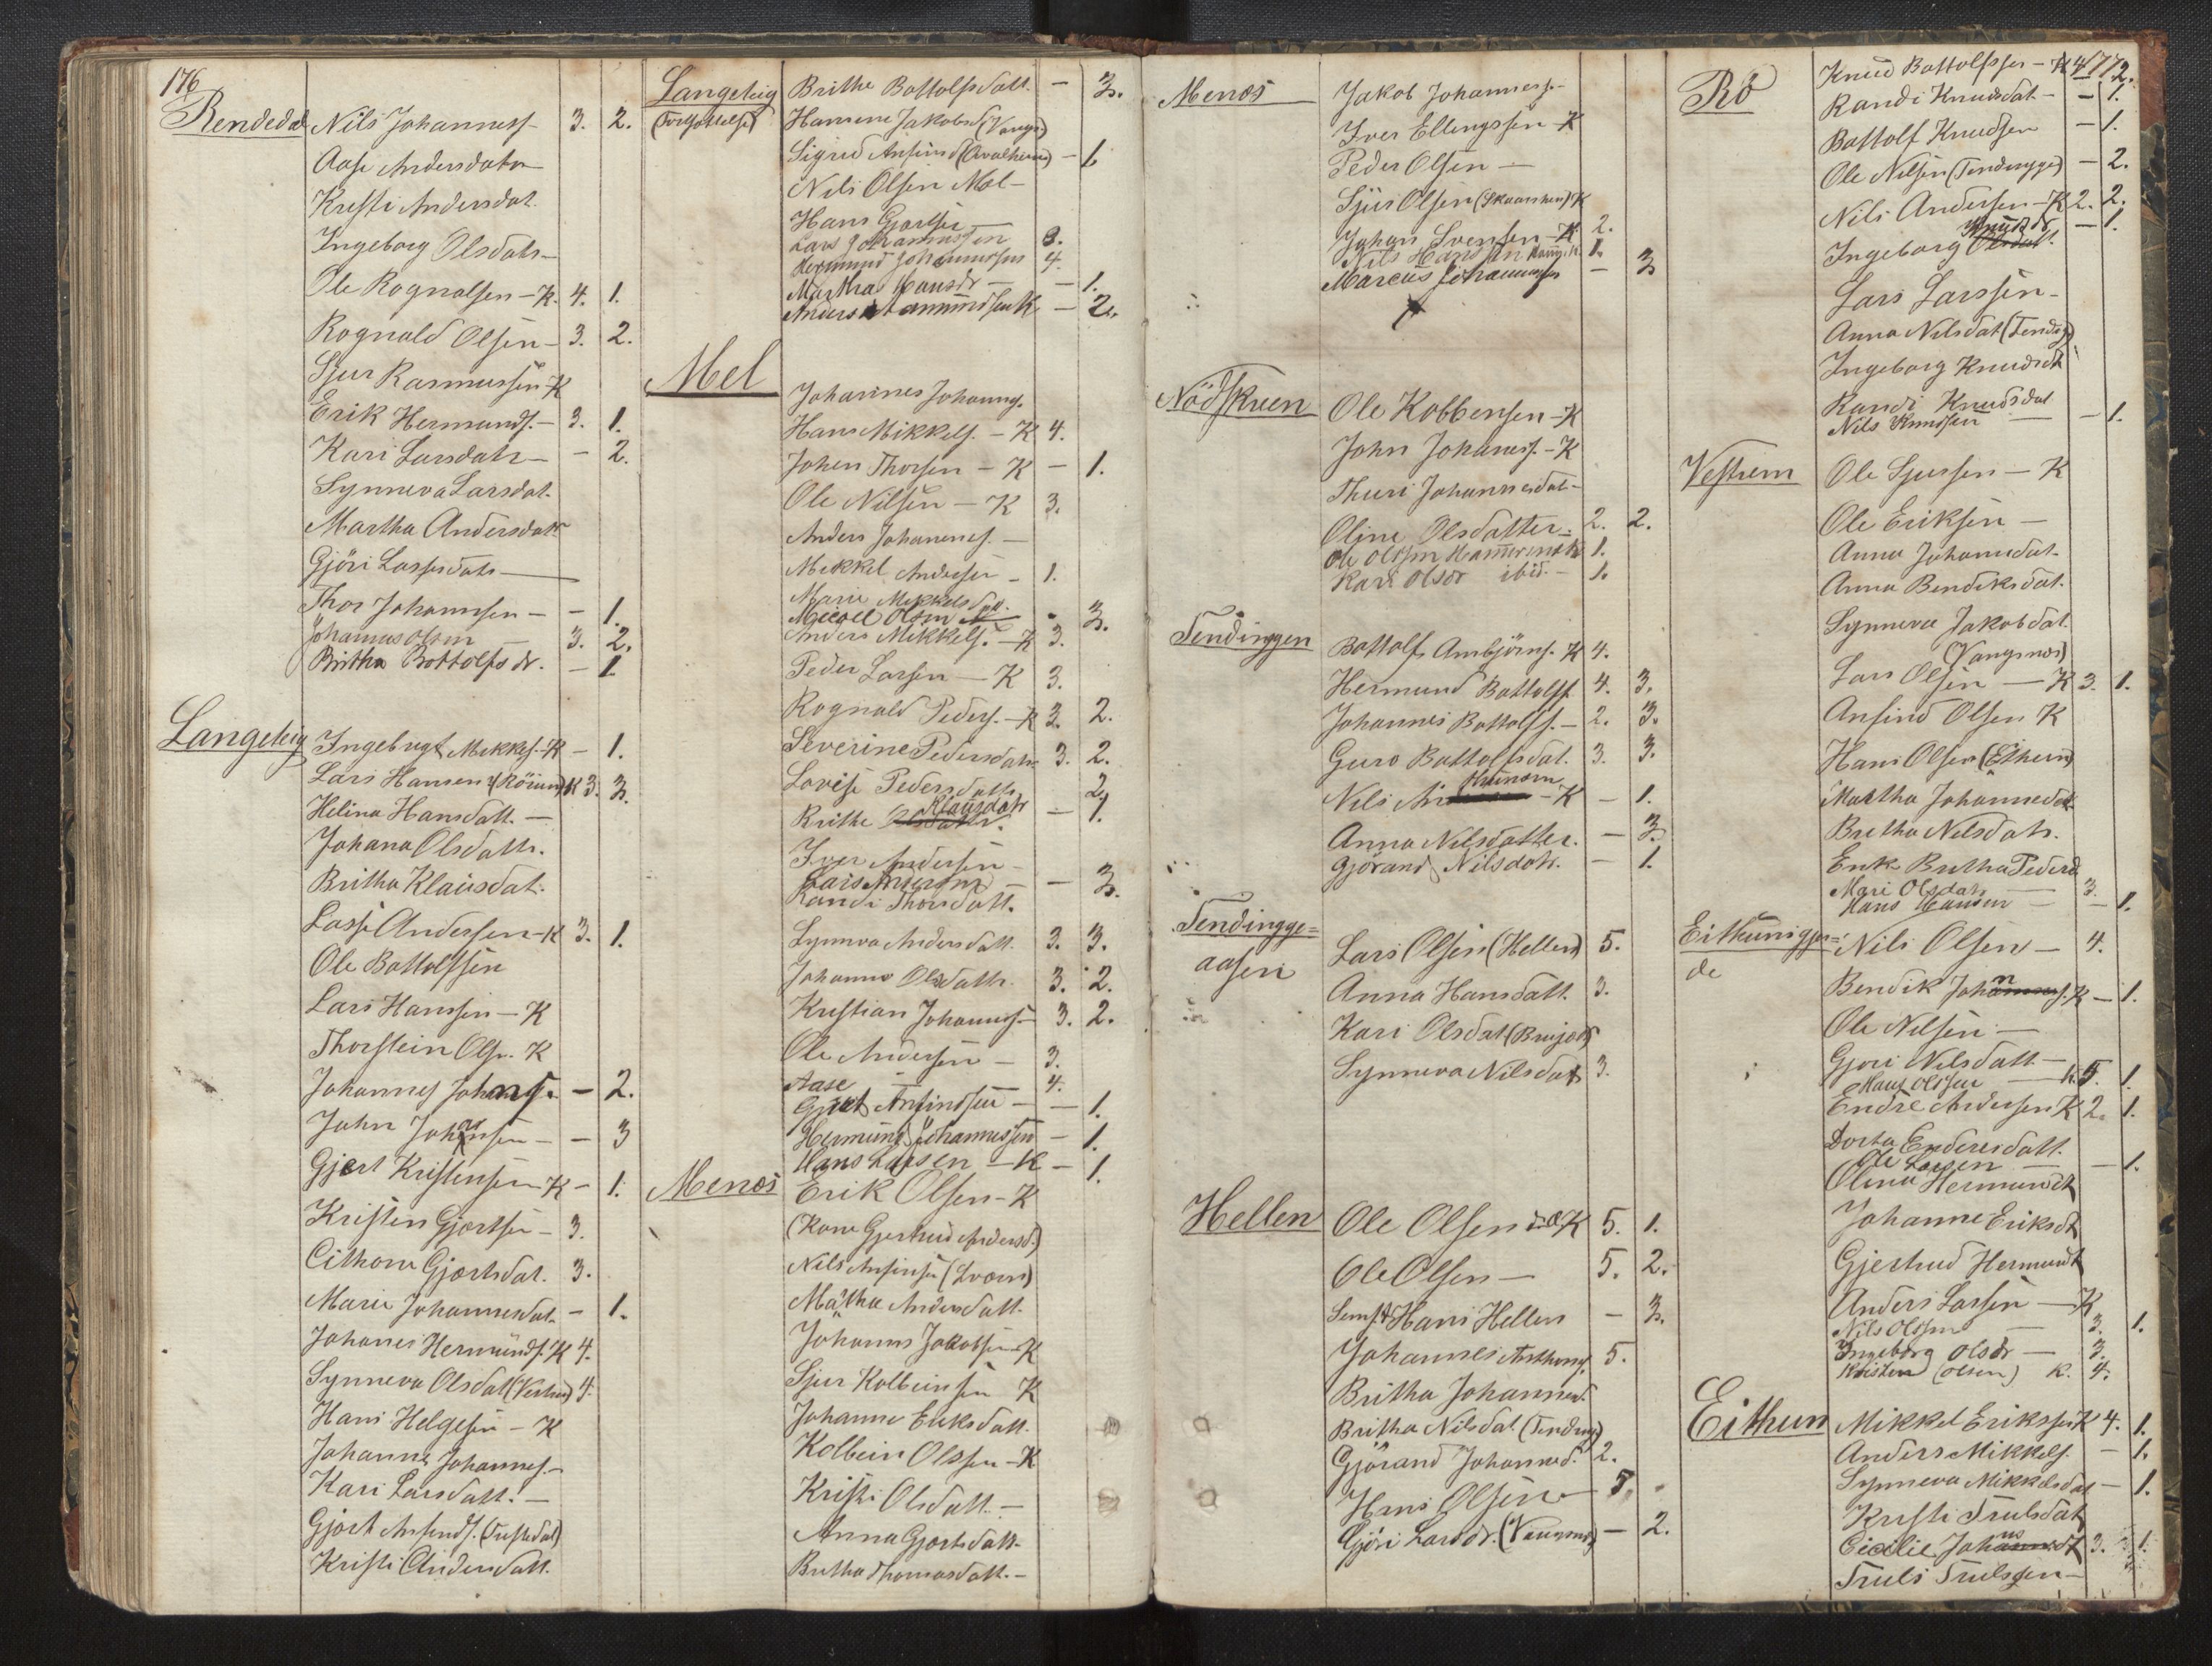 176
Rendedal Nils Johanness. 3. 2.
Aase Andersdatr
Kristi Andersdat.
Ingeborg Olsdatr
Ole Rognalsen - K. 4. 1.
Rognald Olsen - 3. 2.
Sjur Rasmussen K
Erik Hermunds. - 3. 1.
Kari Larsdatr - - 2.
Synneva Larsdat.
Martha Andersdatr
Gjöri Lassesdatr
Thor Johannsen - - 1.
Johannes Olsen 3. 2.
Britha Bottolfsdr. - 1.
Langeteig Ingebrigt Mikkels. K - 1.
Lars Hansen (Röium) K 3. 3.
Helina Hansdatt. -
Johana Olsdattr.
Britha Klausdat.
Lasse Andersen - K 3. 1.
Ole Bottolfsen
Lars Hanssen - K
Thorstein Olsn. K
Johannes Johans. - 2.
John Johnsen - - 3
Gjert Kristensen K - 1.
Kristen Gjertsen - 3.
Cithona Gjertsdat. 3.
Marie Johannesdat. - 1.
Johanes Hermunds. K 4.
Synneva Olsdat (Vestrem) 4.
Hans Helgesen - K
Johannes Johannes.
Kari Larsdatt. -
Gjert Ansends. (Justedal)
Kristi Andersdatt.
Langeteig Brithe Bottolfsdatt. - 3.
Hansine Jakobsd (Vangs)
Sigrid Ansinsd - 1.
Nils Olsen Mel -
Hans Gjertsen
Lars Johannessen 3.
Hermund Johannessen 4.
Martha Hansdr - - 1.
Anders Aamundsen K - 2.
Mel
Johannes Johannes.
Hans Mikkels. - K 4.
Johan Thorsen - K - 1.
Ole Nilsen - K 3.
Anders Johannes. -
Mikkel Andersen - 1.
Marie Mikkelsdatt.
Mikkel Olsen - 3.
Anders Mikkels. - K 3.
Peder Larsen - K 3.
Rognald Peders. - K 3. 2.
Severine Pedersdatr 3. 2.
Lovise Pedersdattr 2.
Brithe Klausdatr - 1.
Iver Andersen -
Lars Andersen - - 3.
Randi Thorsdatt.
Synneva Andersdatt. 3. 3.
Johanne Olsdattr. 3. 2.
Kristian Johannes. 3. 2.
Ole Andersen - 3.
Aase - 4.
Gjert Ansindsen - - 1.
Hermund Johannessen - 1.
Hans Larsen - K - 1.
Menæs Erik Olsen - K
(Kone Gjertrud Andersd.)
Nils Ansinsen
Mätha Andersdatt.
Johannes Jakobsen K
Sjur Kolbeinsen K
Johanne Eriksdatt.
Kolbein Olssen - K
Kristi Olsdatt. -
Anna Gjertsdatt.
Britha Thomasdatt. -
Menæs Jakob Johanness.
Iver Ellingssen K
Peder Olsen -
Sjur Olsen K
Johan Svensen - K 2.
Nils Hansen 1.
Marcus Johannessen - 3
Nödskuen Ole Kobbensen - K
John Johaness. - K
Thuri Johannesdat -
Oline Olsdatter - 2. 2.
Ole Olssen 1.
Kari Olsdr ibid. - 1.
Tendinggen Bottolf Ambjörns. K 4.
Hermund Bottolfs. 4. 3.
Johannes Bottolfs. - 2. 3.
Guro Bottolfsdat. 3. 3.
Nils - K - 1.
Anna Nilsdatter. - 3.
Gjörand Nilsdatr. - 1.
Tendingge=
aasen
Lars Olsen (Hellen) 5.
Anna Hansdatt. 3.
Kari Olsdat
Synneva Nilsdat 3.
Hellen Ole Olsen K 5. 1.
Ole Olsen - 5. 2.
Hans Hellen - 3.
Johannes 5.
Britha Johannesd.
Britha Nilsdat. (Tending)
Gjörand Johannesd. 2.
Hans Olsen 5.
Gjöri Larsdr. (Vangsnæs) - 2.
177
Rö Knud Bottolfssen - K 4 2.
Randi Knudsdat. - - 1.
Bottolf Knudsen - 1.
Ole Nilsen (Tendingge) - 2.
Nils Andersen - K 2. 2.
Ingeborg Knudsdr - 1.
Lars Larssen -
Anna Nilsdat (Tending)
Ingeborg Knudsdt
Randi Knudsdat
Nils Knudsen - 1.
Vestrem Ole Sjursen - K
Ole Eriksen -
Anna Johannsdat.
Anna Bendiksdat.
Synneva Jakobdat.
(Vangsnæs)
Lars Olsen - K 3. 1.
Ansind Olsen K
Hans Olsen (Eithun)
Martha Johannedat
Britha Nilsdatr.
Enk Britha Pedersd
Mari Olsdatr 3.
Hans Hansen - 1.
Eithunsgjer=
de
Nils Olsen - 4.
Bendik Johan K - 1.
Ole Nilsen -
Gjöri Nilsdatt -
Hans Olssen K 5. 1.
Endre Andersen K 2. 1.
Dorta Enderesdatt.
Ole Larsen - 1.
Olina Hermundt
Johanne Eriksdt
Gjertrud Hermundt
Anders Larsen - K
Nils Olssen - 3. 1.
Ingeborg Olsdr - 3.
Kristen (Olsen) K. 4.
Eithun Mikkel Erikssen K 4. 1.
Anders Mikkels. - 1.
Synneva Mikkelsdat - 1.
Kristi Trulsdat
Cicilie 3. 1.
Truls Trulssen -